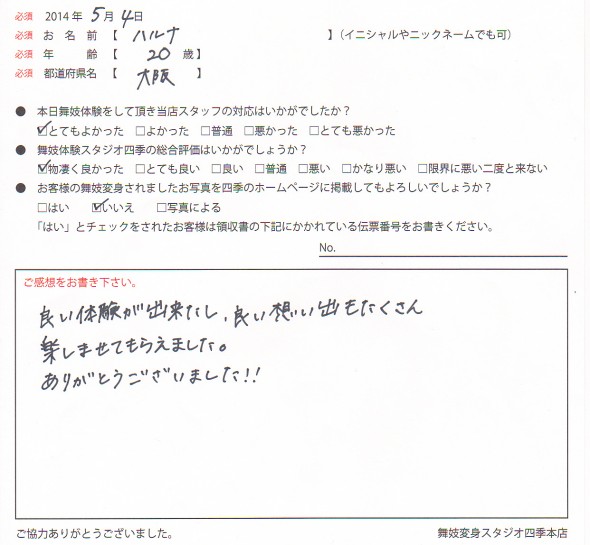 必須 2014年 5月 4日
必須 お名前【 ハルナ 】(イニシャルやニックネームでも可)
必須 年齢【 20 歳】
必須 都道府県名【 大阪 】
● 本日舞妓体験をして頂き当店スタッフの対応はいかがでしたか?
☑とてもよかった □よかった □普通 □悪かった □とても悪かった
● 舞妓体験スタジオ四季の総合評価はいかがでしょうか?
☑物凄く良かった □とても良い □良い □普通 □悪い □かなり悪い □限界に悪い二度と来ない
● お客様の舞妓変身されましたお写真を四季のホームページに掲載してもよろしいでしょうか?
□はい ☑いいえ □写真による
「はい」とチェックをされたお客様は領収書の下記にかかれている伝票番号をお書きください。
No.
ご感想をお書き下さい。
良い体験が出来たし、良い想い出もたくさん
楽しませてもらえました。
ありがとうございました!!
ご協力ありがとうございました。 舞妓変身スタジオ四季本店